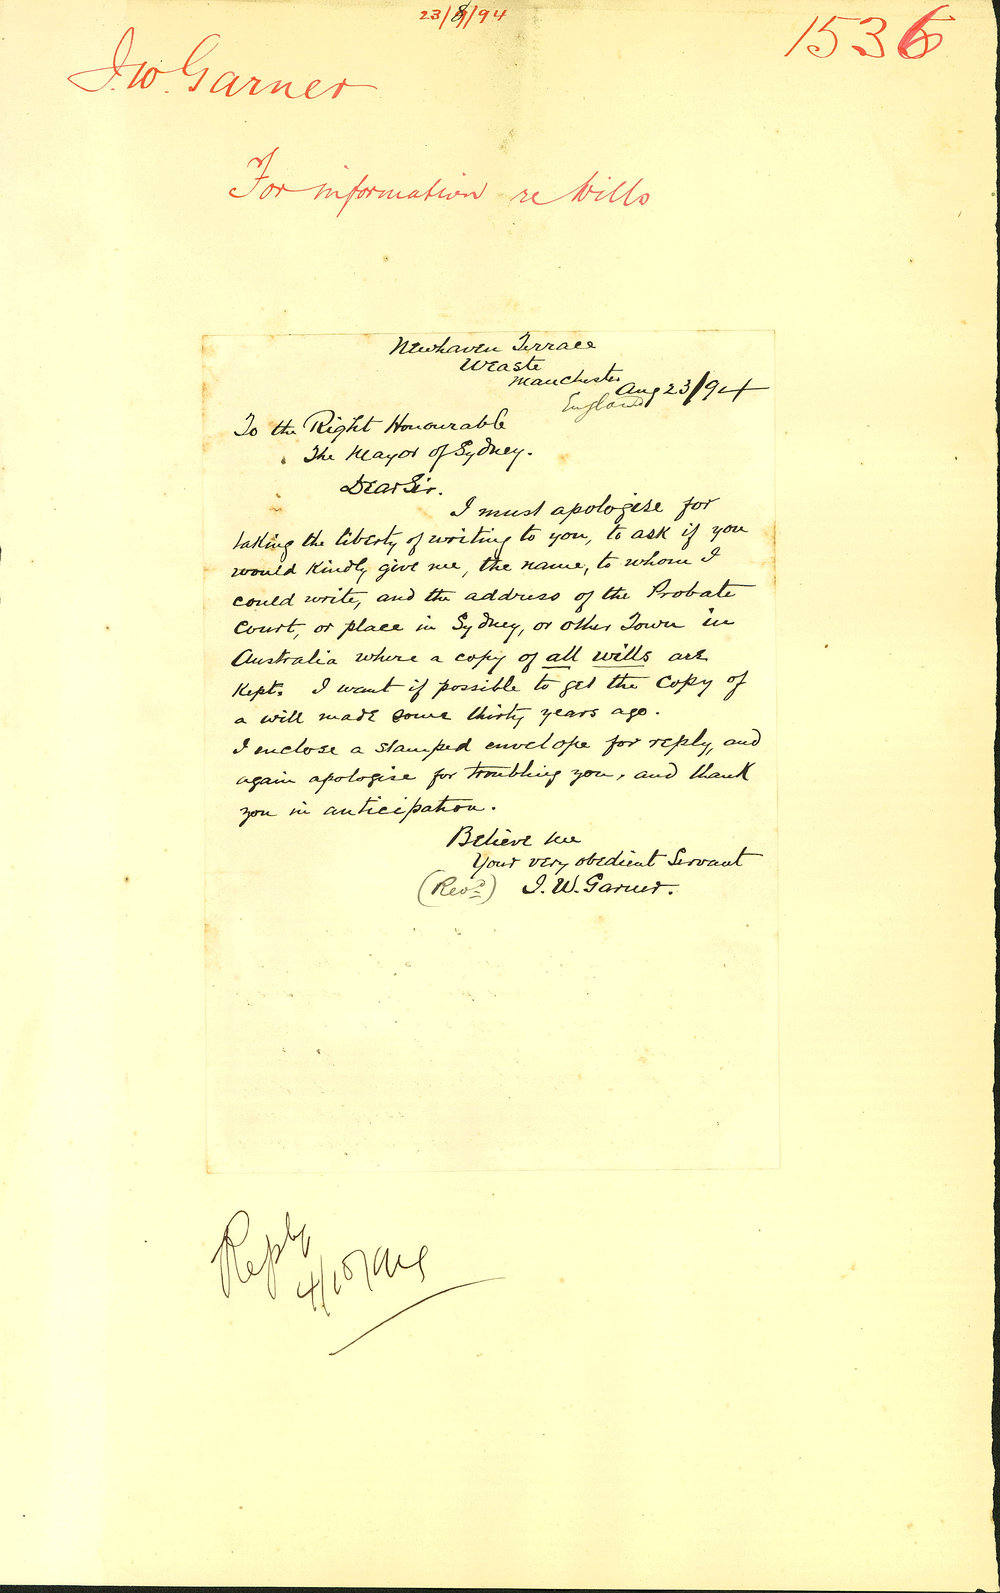 23/8/94
1536
J. W. Garner
For information re Wills
Newhaven Terrace
Weaste
Manchester
England
Aug 23/94
To the Right Honourable
The Mayor of Sydney.
Dear Sir.
I must apologise for
taking the liberty of writing to you, to ask if you
would kindly give me, the name, to whom I
could write, and the address of the Probate
Court, or place in Sydney, or other Town in
Australia where a copy of all wills are
kept. I want if possible to get the copy of
a will made some thirty years ago.
I enclose a stamped envelope for reply, and
again apologise for troubling you, and thank
you in anticipation.
Believe me
Your very obedient Servant
(Revd) J. W. Garner.
Reply
4/10/94